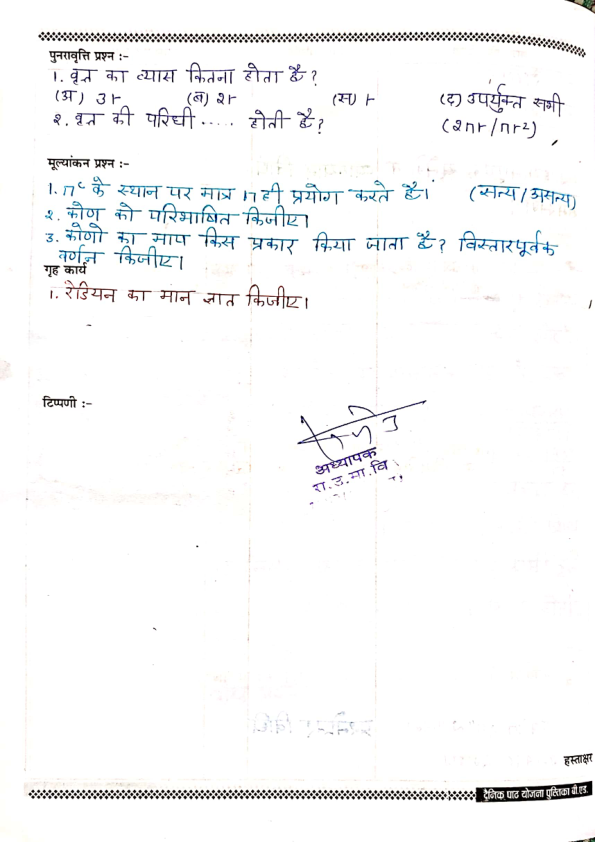 पुनरावृत्ति प्रश्न :-
1. वृत का व्यास कितना होता है?
(अ) 3r (ब) 2r (स) r (द) उपर्युक्त सभी
2. वृत की परिधी ..... होती है? (2πr/πr²)
मूल्यांकन प्रश्न :-
1. πᶜ के स्थान पर मात्र π ही प्रयोग करते है। (सत्य/असत्य)
2. कोण को परिभाषित किजीए।
3. कोणो का माप किस प्रकार किया जाता है? विस्तारपूर्वक
वर्णन किजीए।
गृह कार्य
1. रेडियन का मान ज्ञात किजीए।
टिप्पणी :-
अध्यापक
रा.उ.मा.वि
हस्ताक्षर
दैनिक पाठ योजना पुस्तिका बी.एड.